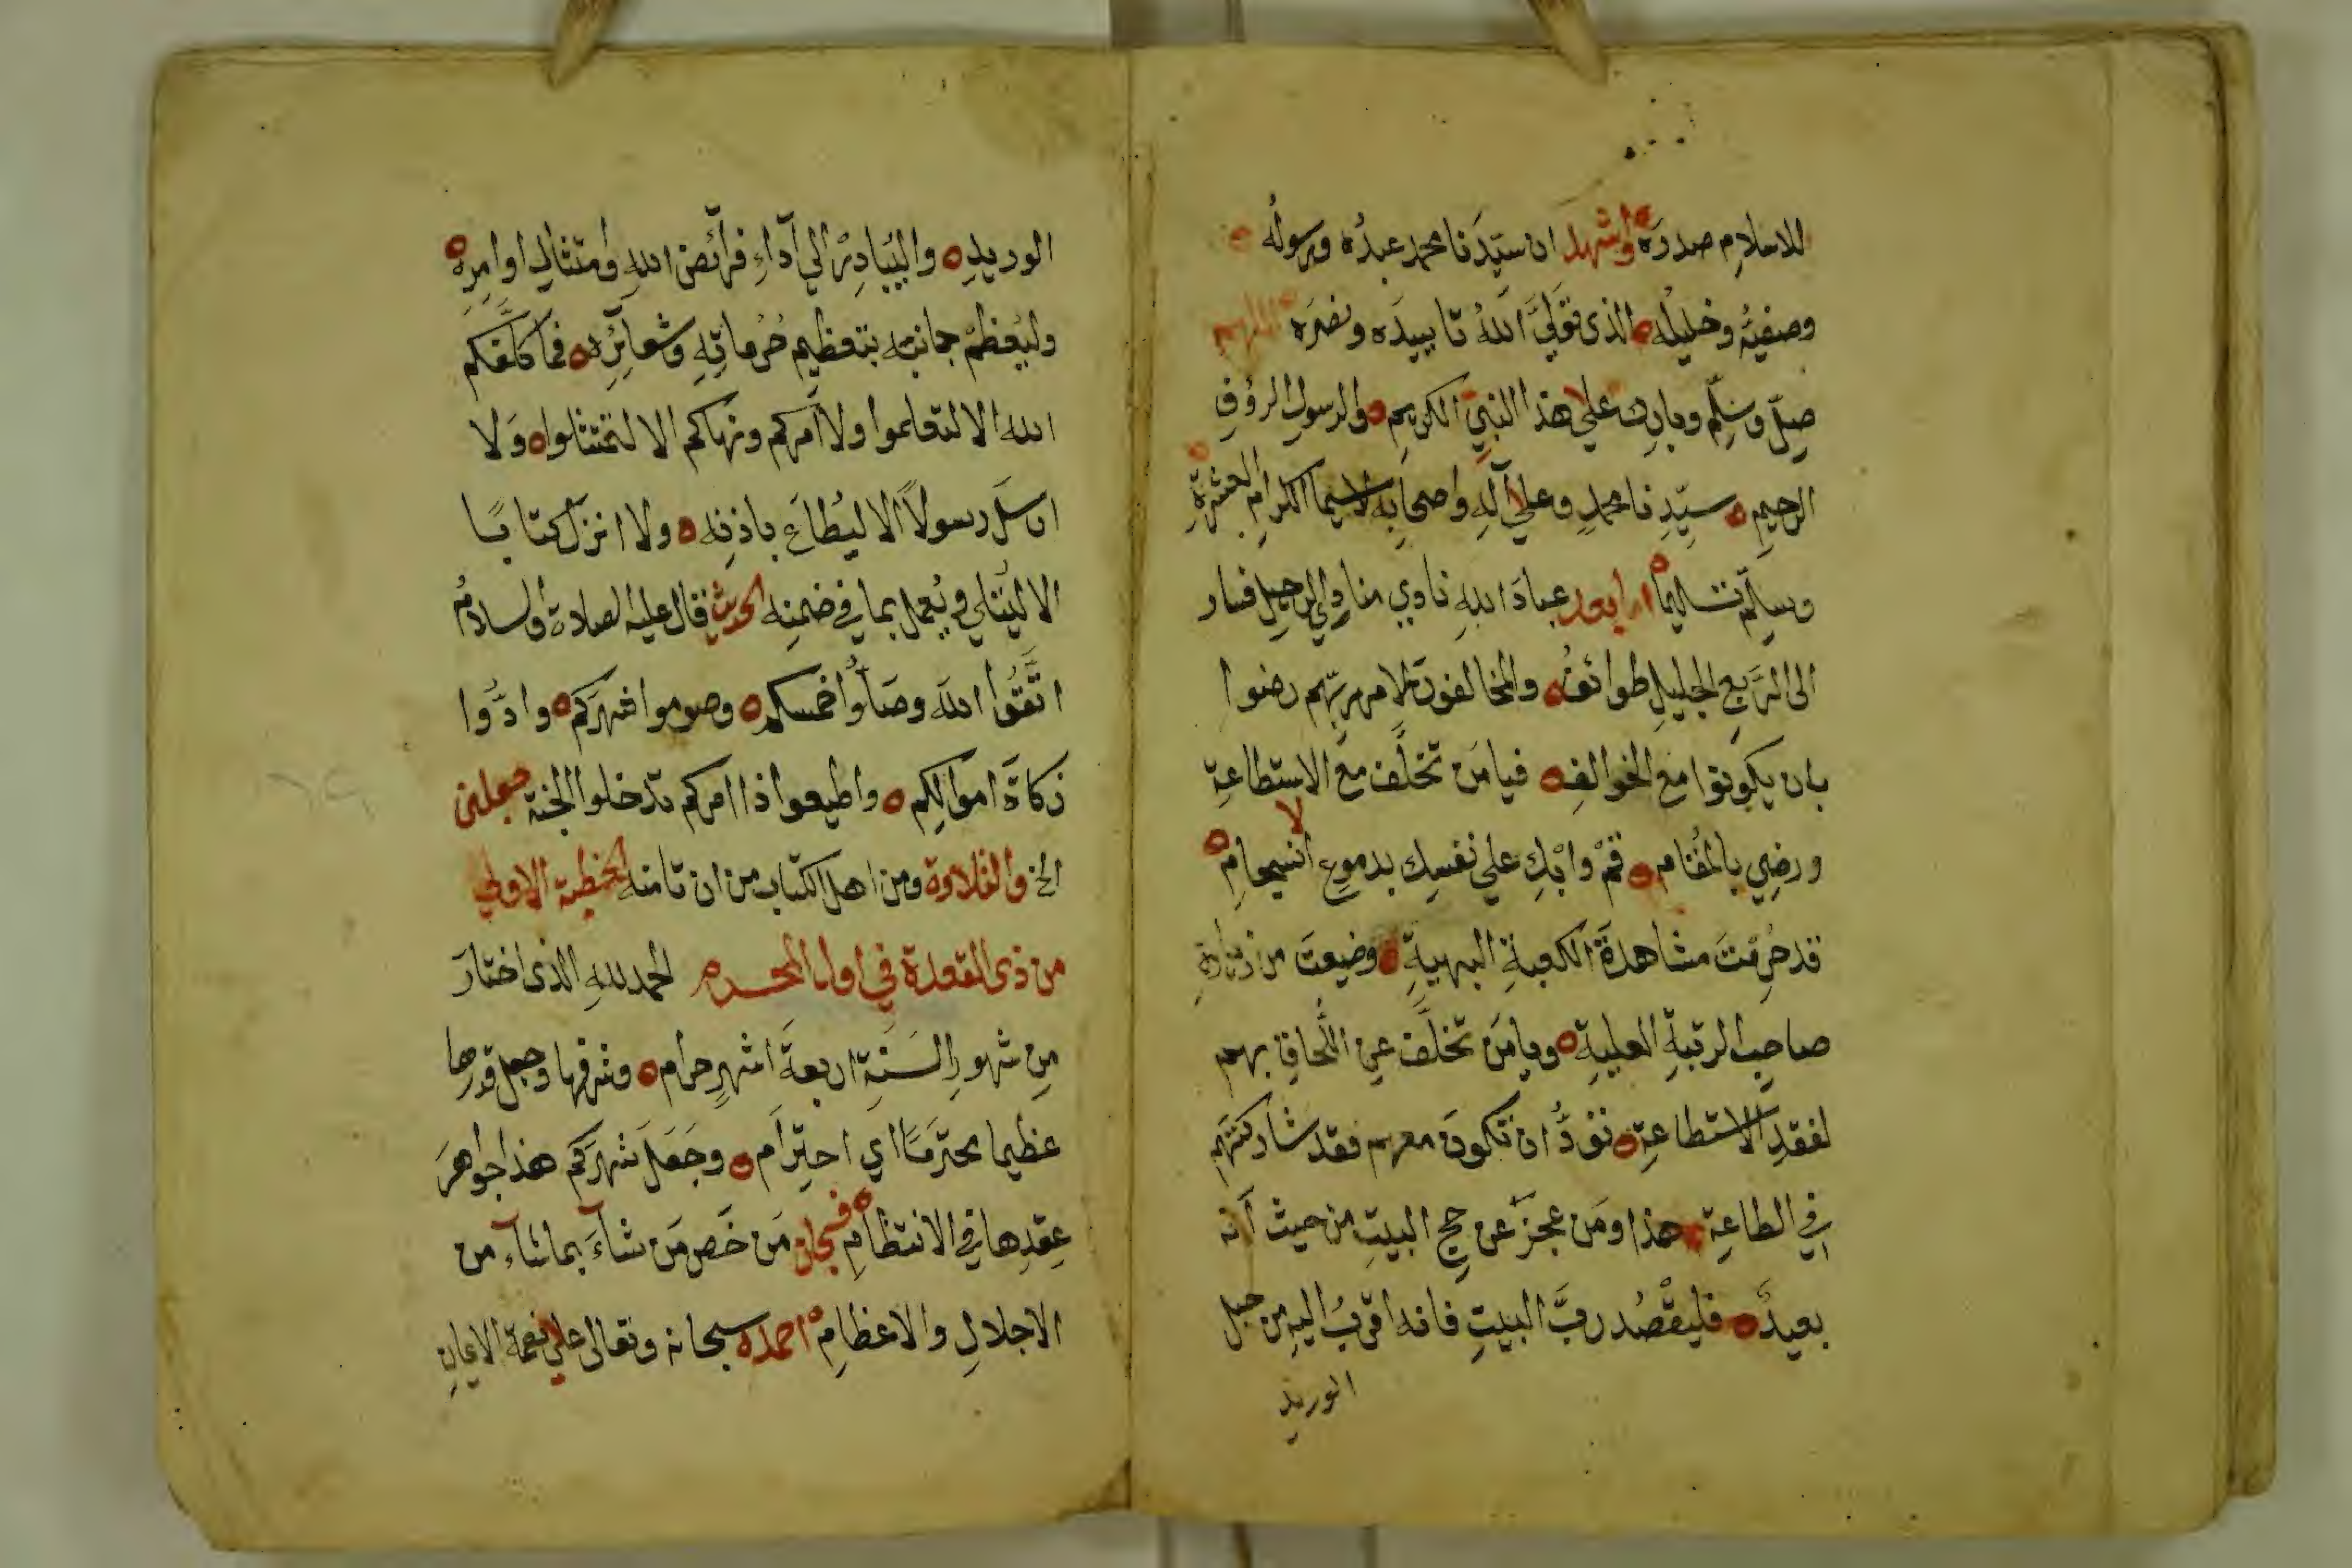 للاسلامِ صدرَه واشهد ان سيّدَنا محمد عبدُه ورسولُه
وصفيُّه وخليلُه الذى تَوَلَّى اللهُ تاييدَه ونصرَه اللهم
صلّ وسَلِّم وبارك على هذا النبيّ الكريم والرسولِ الرؤفِ
الرحيمِ سيّدِنا محمدٍ وعلى آلِهِ واصحابِه لاسيما الكرامِ العشرةِ
وسلّم تسليمًا اما بعد عبادَ اللهِ نادي منادِي الرحيل فسار
الى الرَّبعِ الجليلِ طوائفُه والمخالفون لامر ربّهم رضوا
بان يكونوا مع الخوالفِ فيامَن تخلَّف مع الاستطاعةِ
ورضِي بالمُقامِ قمْ وابْكِ على نفسِك بدموعٍ انسجامٍ
قد حُرِمْتَ مشاهدَةَ الكعبةِ البهيةِ وضيعتَ من زيارةِ
صاحبِ الرتبةِ العليةِ ويامَن تخلَّف عن اللَّحاقِ بهم
لفقدِ الاستطاعةِ تودُّ ان تكونَ معهم فقد شاركتَهم
في الطاعةِ هذا ومَن عجزَ عن حج البيتِ من حيث أنه
بعيدٌ فليقْصُد ربَّ البيتِ فانه اقربُ اليهِ من حبل
الوريد
الوريدِ واليُبادِرْ الي آداءِ فرآئضِ اللهِ وامتثالِ اوامِرِه
وليُعظمْ جانبَه بتعظيمِ حُرُماتِهِ وشعآئِرِه فما كلّفكم
الله الا لتعلموا ولا أمركم ونهاكم الا لتمتثلوا وَلا
ارسَلَ رسولاً الا ليُطاعَ باذنِه ولا انزل كتابًا
الا ليُتلي ويُعمل بما في ضمنِه الحديث قال عليه الصلاة والسلامُ
اتَّقُوا اللهَ وصَلُّوا خمسكم وصوموا شهرَكم وادُّوا
زكاةَ اموالِكم واطيعوا ذا امركم تدخلوا الجنة جعلنى
الخ والتلاوة ومن اهل الكتاب من ان تامنه الخطبة الاولي
من ذى القعدة في اول المحرم الحمد للهِ الذى اختارَ
مِن شهورِ السَنَةِ اربعةَ اشهرٍ حرام وشرفها وجعل قدرها
عظيما محترَمًا اي احترام وجَعَلَ شهرَكم هذا جواهرَ
عِقدِها في الانتظامِ فسبحان مَن خَص مَن شآءَ بما شآء من
الاجلالِ والاعظامِ احمده سبحانه وتعالى على نعمة الايمانِ